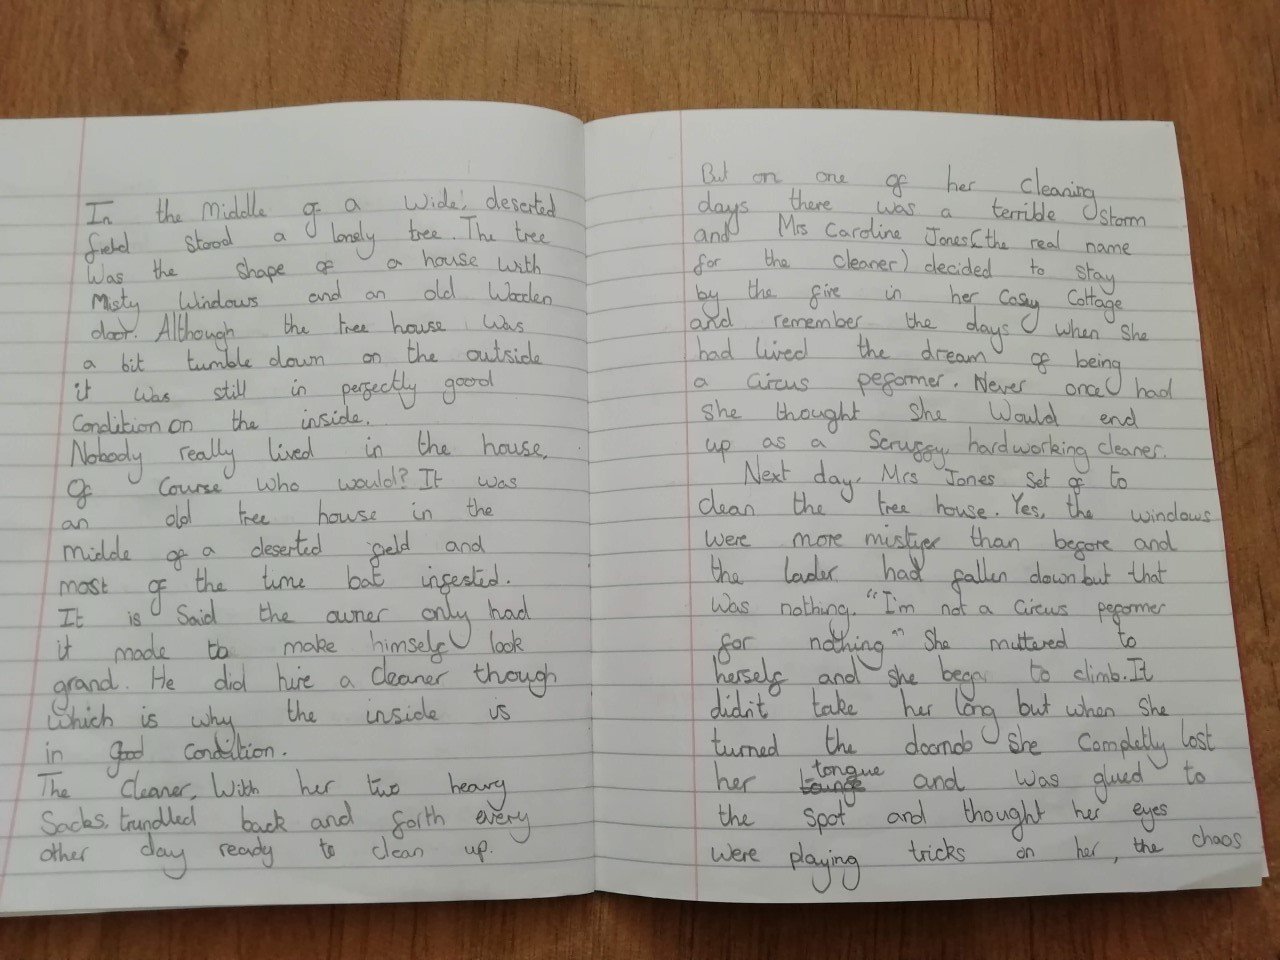 In the middle of a wide, deserted
field stood a lonely tree. The tree
was the shape of a house with
Misty windows and an old wooden
door. Although the tree house was
a bit tumble down on the outside
it was still in perfectly good
Condition on the inside.
Nobody really lived in the house,
Of course who would? It was
an old tree house in the
middle of a deserted field and
most of the time bat infested.
It is said the owner only had
it made to make himself look
grand. He did hire a cleaner though
which is why the inside is
in good condition.
The cleaner, with her two heavy
sacks, trundled back and forth every
other day ready to clean up.
But on one of her cleaning
days there was a terrible storm
and Mrs Caroline Jones (the real name
for the cleaner) decided to stay
by the fire in her cosy cottage
and remember the days when she
had lived the dream of being
a circus peformer. Never once had
she thought she would end
up as a scruffy, hardworking cleaner.
Next day, Mrs Jones set of to
clean the tree house. Yes, the windows
were more mistyer than before and
the lader had fallen down but that
was nothing. "I'm not a circus peformer
for nothing" she muttered to
herself and she began to climb. It
didn't take her long but when she
turned the doornob she completly lost
her tongue and was glued to
the spot and thought her eyes
were playing tricks on her, the chaos